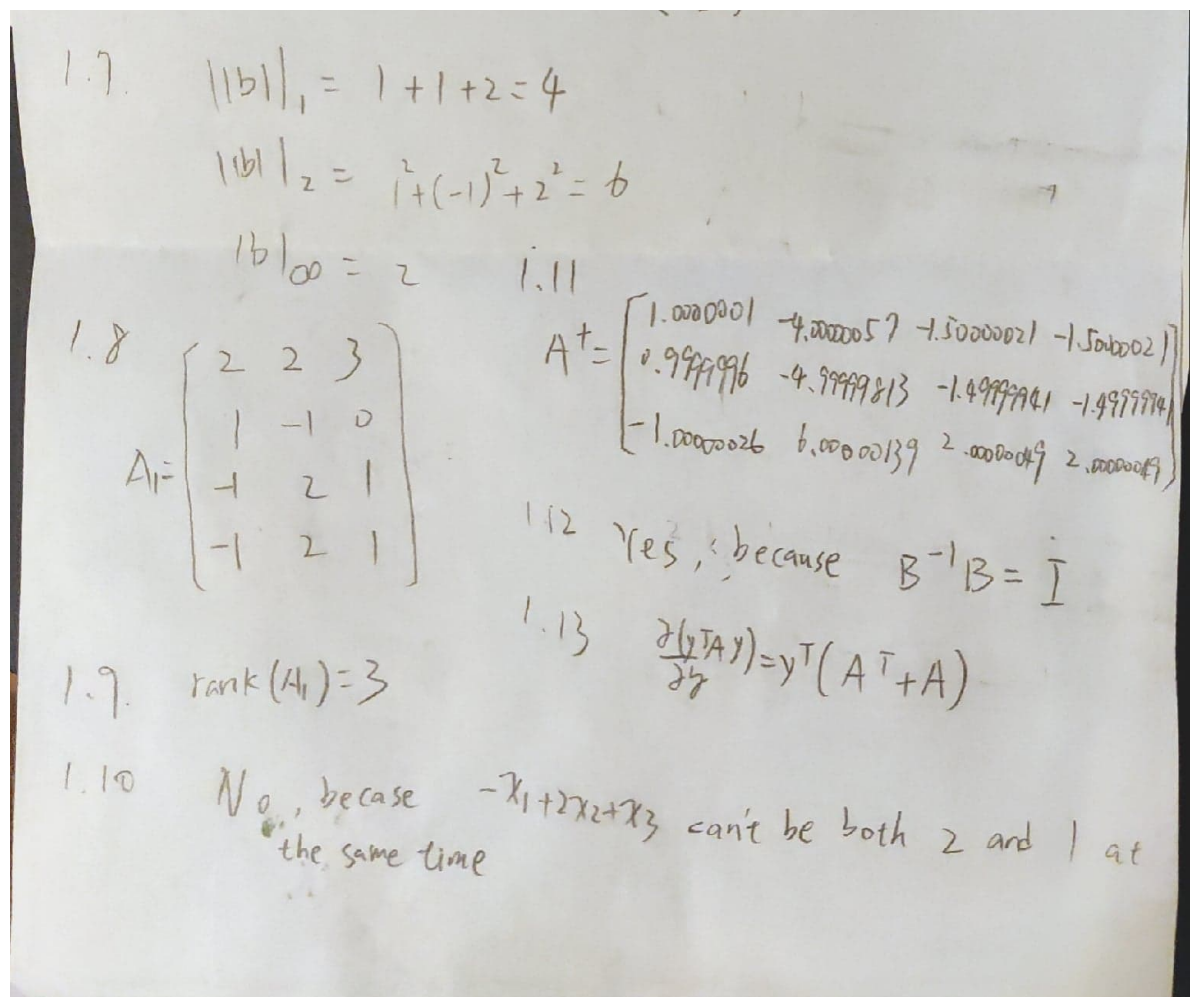 1.7. ||b||₁ = 1+1+2=4
||b||₂ = 1²+(-1)²+2²=6
|b|∞ = 2
1.8
A₁=
2 2 3
1 -1 0
-1 2 1
-1 2 1
1.9. rank(A₁)=3
1.10 No, becase -x₁+2x₂+x₃ can't be both 2 and 1 at
the same time
1.11
A⁺=
1.0000001 -4.00000057 -1.50000021 -1.50000021
0.9999996 -4.99999813 -1.49999941 -1.49999941
-1.00000026 6.00000139 2.00000049 2.00000049
1.12 Yes, because B⁻¹B = I
1.13 ∂(yᵀAy)/∂y=yᵀ(Aᵀ+A)